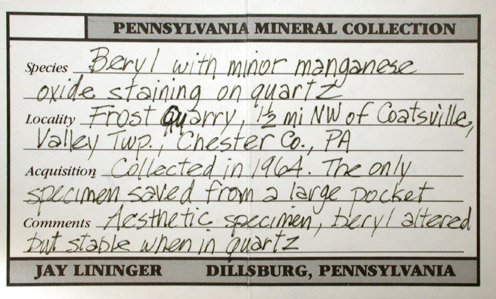 PENNSYLVANIA MINERAL COLLECTION
Species Beryl with minor manganese
oxide staining on quartz
Locality Frost Quarry, 1½ mi NW of Coatsville,
Valley Twp., Chester Co., PA
Acquisition Collected in 1964. The only
specimen saved from a large pocket
Comments Aesthetic specimen, beryl altered
but stable when in quartz
JAY LININGER DILLSBURG, PENNSYLVANIA